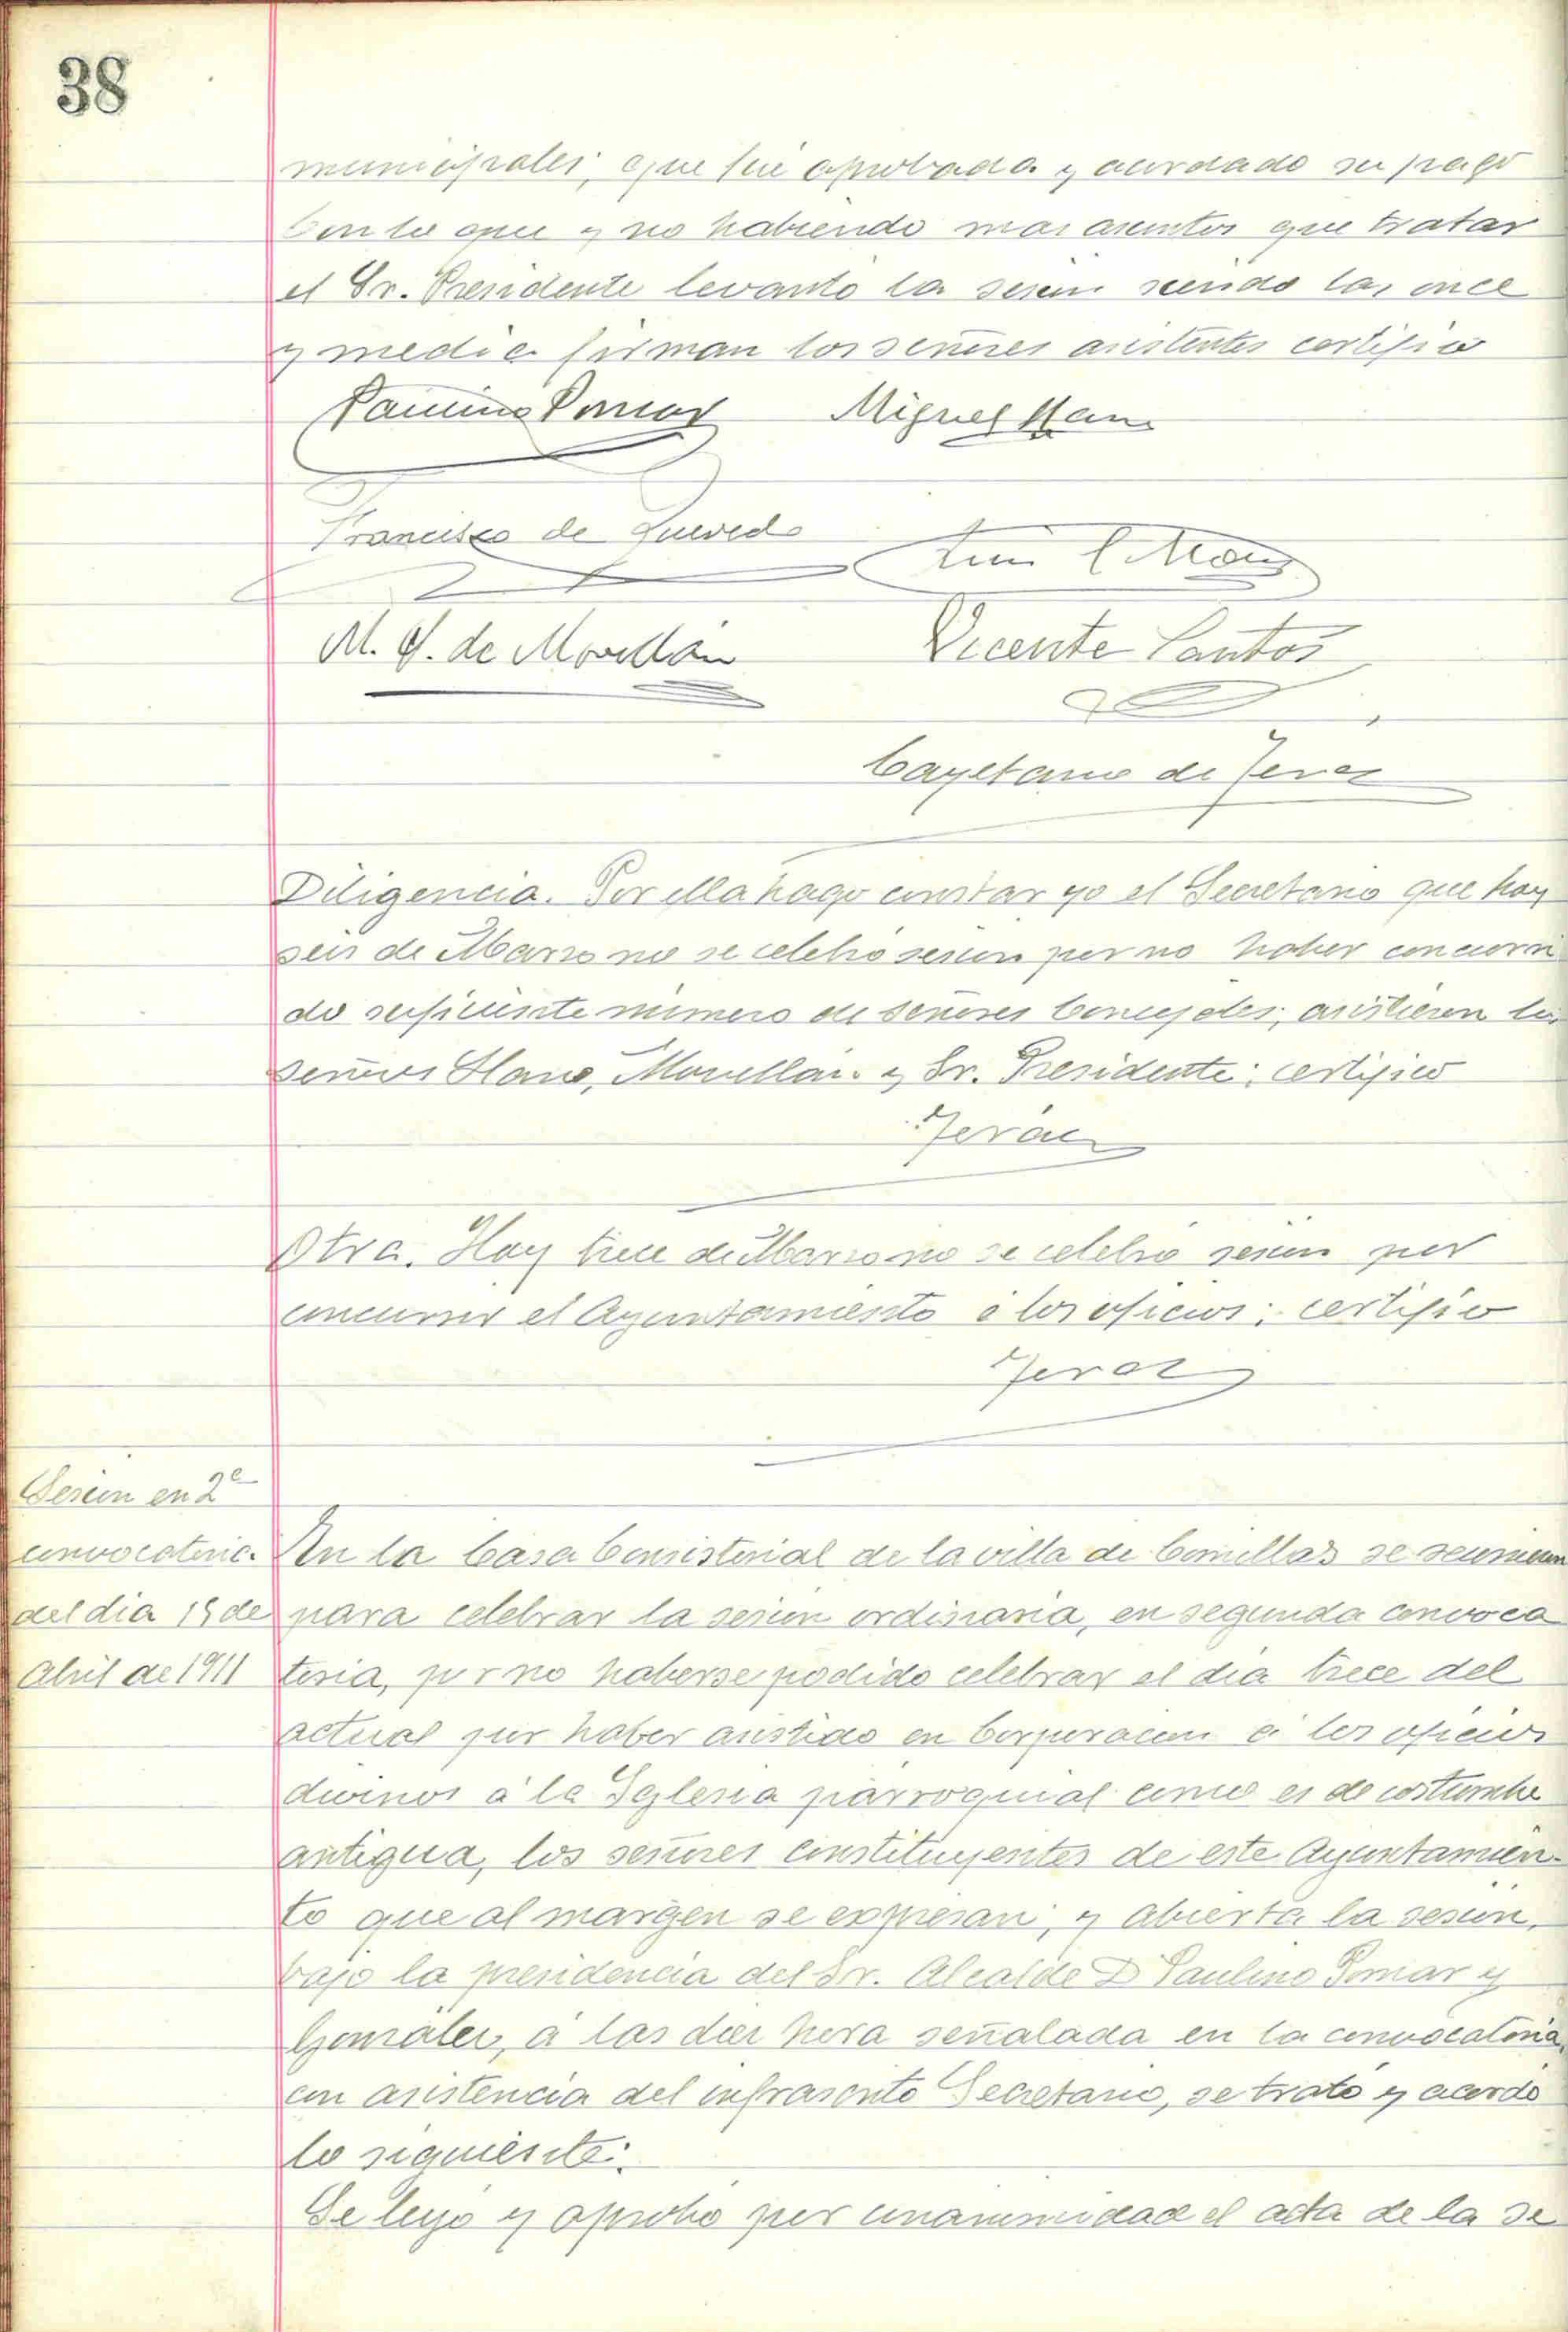 38
municipales; que fué aprobada y acordado su pago
Con lo que y no habiendo mas asuntos que tratar
el Sr. Presidente levantó la sesion siendo las once
y media firman los señores asistentes certifico
Paulino Pomar Miguel Llano
Francisco de Quevedo
M. G. de Movellán Vicente Santos
Cayetano de Jeraz
Diligencia. Por ella hago constar yo el Secretario que hoy
seis de Marzo no se celebró sesion por no haber concurri
do suficiente número de señores Concejales; asistieron los
señores Llano, Movellan y Sr. Presidente; certifico
Jeraz
Otra. Hoy trece de Marzo no se celebró sesion por
concurrir el Ayuntamiento á los oficios; certifico
Jeraz
Sesion en 2ª
convocatoria
del dia 15 de
Abril de 1911
En la Casa Consistorial de la villa de Comillas se reunieron
para celebrar la sesion ordinaria, en segunda convoca
toria, por no haberse podido celebrar el dia trece del
actual por haber asistido en Corporacion á los oficios
divinos á la Iglesia parroquial como es de costumbre
antigua, los señores constituyentes de este Ayuntamien-
to que al margen se expresan; y abierta la sesion,
bajo la presidencia del Sr. Alcalde D Paulino Pomar y
Gonzalez, á las diez hora señalada en la convocatoria,
con asistencia del infrascrito Secretario, se trató y acordó
lo siguiente:
Se leyó y aprobó por unanimidad el acta de la se